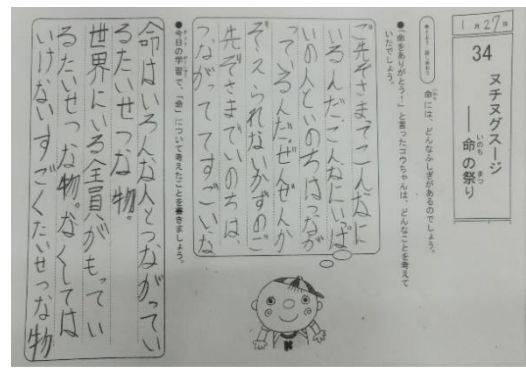 1月27日
34
ヌチヌグスージ
いのち まつ
――命の祭り
命には、どんなふしぎがあるのでしょう。
●「命をありがとう!」と言ったコウちゃんは、どんなことを考えて
いたでしょう。
ご先ぞさまてこんなに
いるんだ。こんなにいっぱ
いの人といのちはつなが
っているんだ。ぜんぜんか
ぞえられないかずのご
先ぞさまでいのちは、
つながっててすごいな
●今日の学習で、「命」について考えたことを書きましょう。
命はいろんな人とつながってい
るたいせつな物。
世界にいる全員がもってい
るたいせつな物。なくしては
いけないすごくたいせつな物